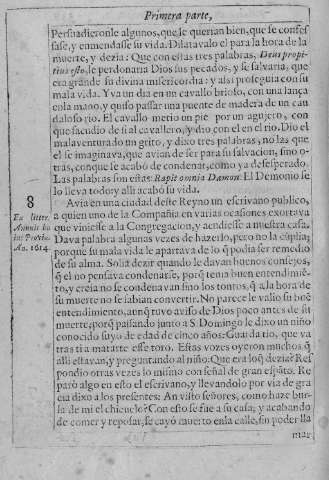 Primera parte,
Persuadieronle algunos, que le querian bien, que se confes
sase, y enmendasse su vida. Dilatavalo el para la hora de la
muerte, y dezia: Que con estas tres palabras, Deus propi-
tius esto, le perdonaria Dios sus pecados, y se salvaria, que
era grande su divina misericordia: y assi proseguia con su
mala vida. Yva un dia en un cavallo brioso, con una lança
en la mano, y quiso passar una puente de madera de un cau
daloso rio. El cavallo metio un pie por un agujero, con
que sacudio de si al cavallero, y dio con el en el rio. Dio el
malaventurado un grito, y dixo tres palabras, no las que
el se imaginava, que avian de ser para su salvacion, sino o-
tras, con que le acabò de condenar, como ya desesperado.
Las palabras son estas: Rapit omnia Dæmon. El Demonio se
lo lleva todo: y alli acabò su vida.
8
Ex litter.
Annuis hu
ius Provin.
An. 1614.
Avia en una ciudad deste Reyno un escrivano publico,
a quien uno de la Compañia en varias ocasiones exortava
que viniesse a la Congregacion, y acudiesse a nuestra casa.
Dava palabra algunas vezes de hazerlo, pero no la cũplia;
porque su mala vida le apartava de lo q̃ podia ser remedio
de su alma. Solia dezir quando le davan buenos consejos,
q̃ el no pensava condenarse, porq̃ tenia buen entendimiẽ-
to, y creia no se condenavan sino los tontos, q̃ a la hora de
su muerte no se sabian convertir. No parece le valio su buẽ
entendimiento, aunq̃ tuvo aviso de Dios poco antes de su
muerte; porq̃ passando junto a S. Domingo le dixo un niño
conocido suyo de edad de cinco años: Guardate, que va
tras ti a matarte esse toro. Estas vozes oyeron muchos q̃
alli estavan, y preguntando al niño: Que era lo q̃ dezia? Res
pondio otras vezes lo mismo con señal de gran espãto. Re
parò algo en esto el escrivano, y llevandolo por via de gra
cia dixo a los presentes: An visto señores, como haze bur-
la de mi el chicuelo? Con esto se fue a su casa, y acabando
de comer y reposar, se cayò muerto en la calle, sin poder lla
mar